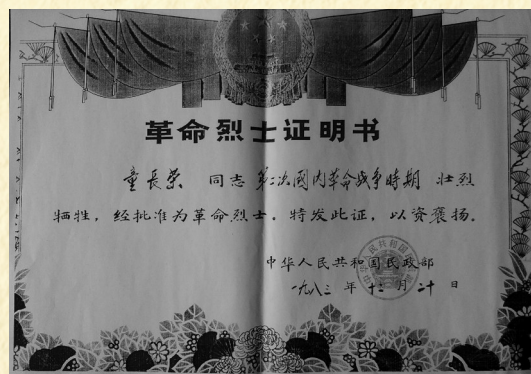 革命烈士证明书
童長荣 同志 第二次國内革命战争時期 壮烈
牺牲，经批准为革命烈士。特发此证，以资褒扬。
中华人民共和国民政部
一九八三 年 十二 月 二十 日